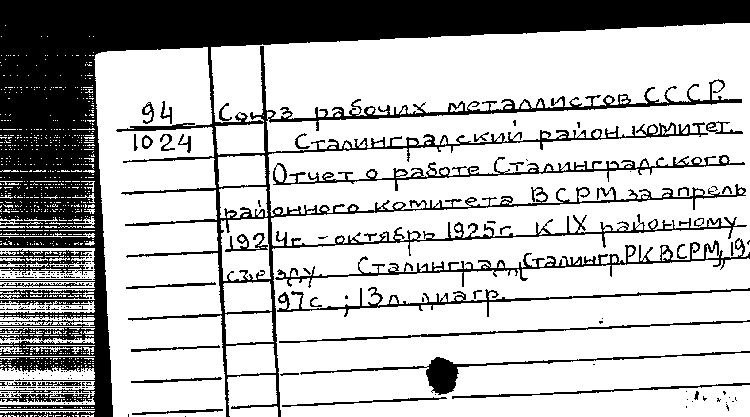 94 Союз рабочих металлистов СССР.
1024 Сталинградский район. комитет.
Отчет о работе Сталинградского
районного комитета ВСРМ за апрель
1924г. - октябрь 1925г. К IX районному
съезду. Сталинград, [Сталингр. РК ВСРМ], 192
97с. ; 13л. диагр.